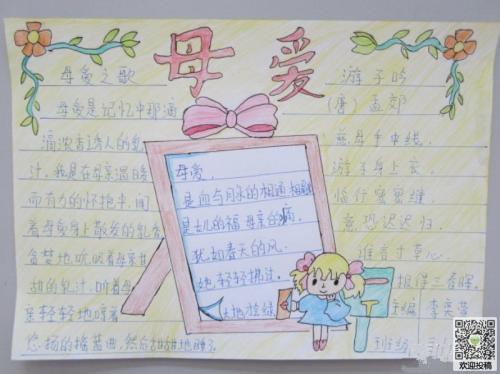 母爱
母爱之歌
母爱是记忆中那滴
滴浓香诱人的乳
汁。我是在母亲温暖
而有力的怀抱中,闻
着母爱身上散发的乳香
含笑地,吮吸着母亲甘
甜的乳汁,听着母
亲轻轻地哼着
悠扬的摇蓝曲,然后甜甜地睡了
母爱,
是血与月永的相涌
是女儿的福母亲的病,
犹如春天的风
她轻轻拂过,
大地披绿
游子吟
(唐)孟郊
慈母手中线,
游子身上衣。
临行密密缝,
意恐迟迟归。
谁言寸草心,
报得三春晖。
主编 李奕萱
班级
欢迎投稿